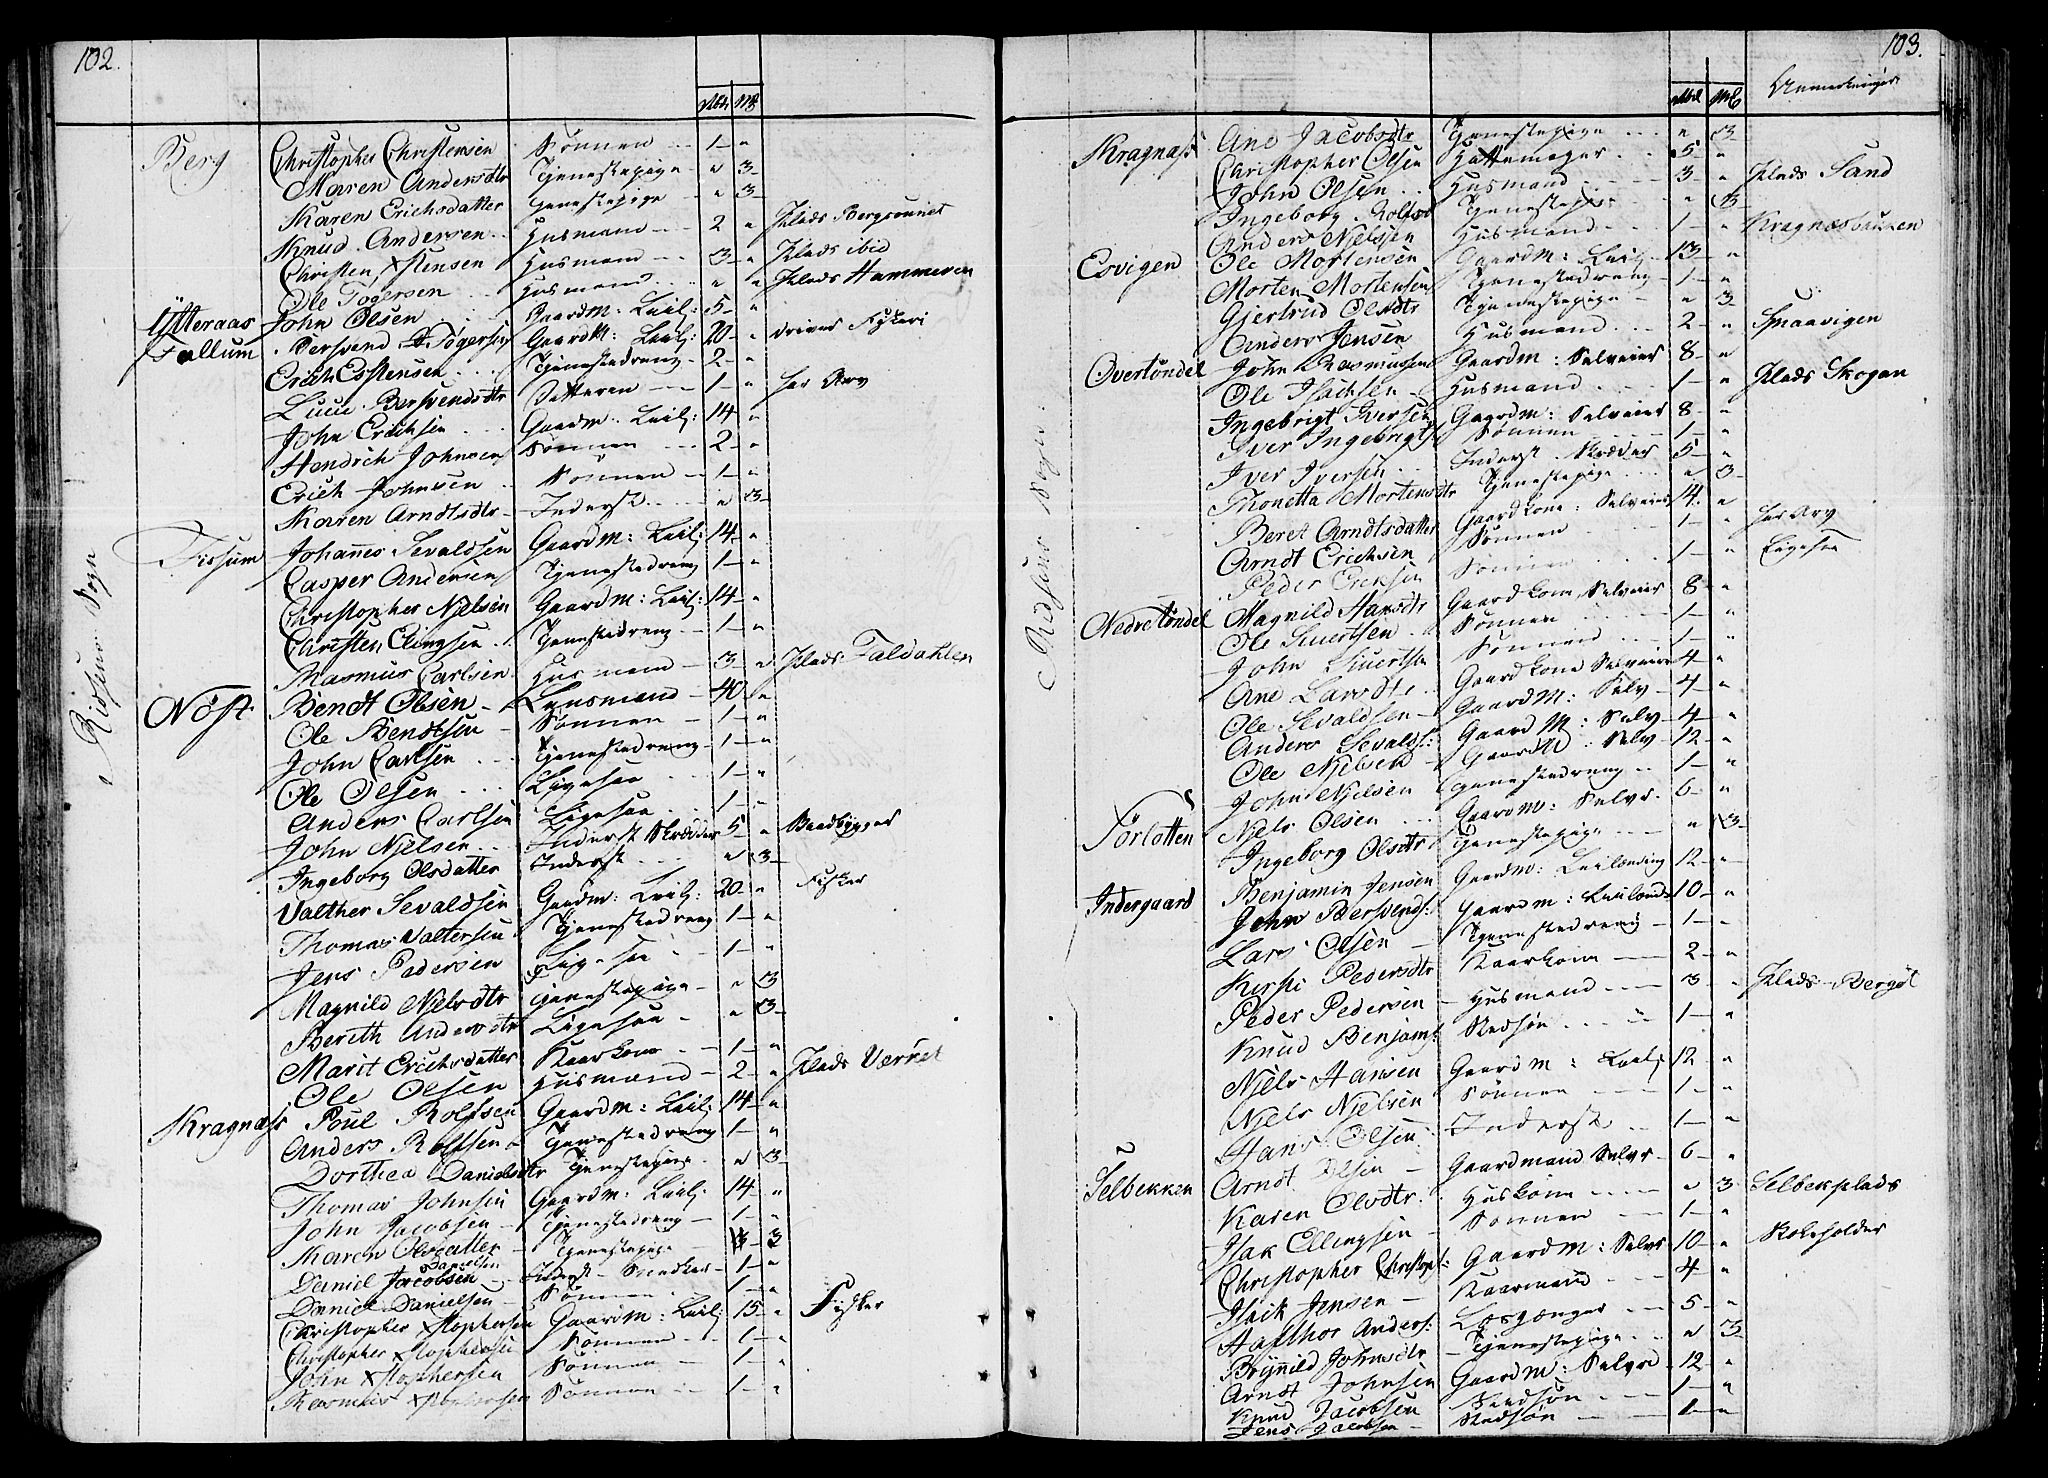 102.
Mbd. Mß
Rissens Sogn
Berg Christopher Christensen Sönnen 1 "
Maren Andersdtr Tjenestepige " 3
Karen Erichsdatter Tjenestepige " 3
Knud Andersen Husmand 2 " Plads Bergsrønnet
Christen Xstensen Husmand 3 " Plads ibid
Ole Togersen Husmand " " Plads Hammeren
Ytteraas John Olsen Gaardm: Leil: 5 "
Fallum Bersvend Togersen Gaardm: Leil: 20 " driver Fiskeri
Erich Estensen Tjenestedreng 2 "
Lucie Bersvendsdtr Datteren 1 " har Arv
John Erichsen Gaardm. Leil: 14 "
Hendrich Johnsen Sönnen 2 "
Erich Johnsen Sönnen 1 "
Karen Arndtsdtr Inderst " 3
Fissum Johanes Sevaldsen Gaardm: Leil: 14 "
Casper Andersen Tjenestedreng 1 "
Christopher Njelsen Gaardm: Leil: 14 "
Christen Elingsen Tjenestedreng 1 "
Rasmus Carlsen Husmand 3 " Plads Faldahlen
Nöst Bendt Olsen Lensmand 40 "
Ole Bendtsen Sönnen 1 "
John Carlsen Tjenestedreng 1 "
Ole Olsen Ligesaa 1 "
Anders Carlsen Ligesaa 1 "
John Njelsen Inderst Skrædder 5 " Baadbygger
Ingeborg Olsdatter Inderst " 3
Valther Sevaldsen Gaardm: Leil: 20 " Fisker
Thomas Valtersen Tjenestedreng 1 "
Jens Pedersen Ligesaa 1 "
Magnild Njelsdtr Tjenestepige " 3
Berith Andersdtr Ligesaa " 3
Marit Erichsdatter Kaarkone 1 "
Ole Olsen Husmand 2 " Plads Værket
Kragnæss Poul Rolfsen Gaardm: Leil: 14 "
Anders Rolfsen Tjenestedreng 1 "
Dorthea Danielsdtr Tjenestepige " 3
Thomas Johnsen Gaardm: Leil: 14 "
John Jacobsen Tjenestedreng 1 "
Karen Olsdatter Tjenestepige 3
Danielsen
Daniel Jacobsen Inderst Snedker 1 "
Daniel Danielsen Sönnen 1 "
Christopher Xstophersen Gaardm: Leil: 15 " Fisker
Christopher Xstophersen Sönnen 1 "
John Xstophersen Sönnen 1 "
Rasmus Xstophersen Sönnen 1 "
103.
Mbd Mß Anmerkninger
Rissens Sogn
Kragnæss Ane Jacobsdtr Tjenestepige " 3
Christopher Olsen Hattemager 5 "
John Olsen Husmand 3 " Plads Sand
Ingeborg Rolfsd Tjenestepige " 3
Anders Njelssen Husmand 1 " Kragnæsbakken
Esvigen Ole Mortensen Gaardm: Leil 13 "
Morten Mortensen Tjenestedreng 1 "
Gjertrud Olsdtr Tjenestepige " 3
Anders Jensen Husmand 2 " Smaavigen
Overtöndel John Rasmussen Gaardm: Selveier 8 "
Ole Isachsen Husmand 1 " Plads Skogan
Ingebrigt Iversen Gaardm: Selveier 8 "
Iver Ingebrigts: Sönnen 1 "
Iver Iversen Inderst Skrædder 5 "
Thonetta Mortensdtr Tjenestepige " 3
Beret Arndtsdatter Gaardkone: Selveier 14 "
Arndt Erichsen Sönnen 1 " har Arv
Peder Ericksen Sönnen 1 " Ligesaa
Nedretöndel Magnild Hansdtr Gaardkone Selveier 8 "
Ole Siuertsen Sönnen 1 "
John Siuertsen Sönnen 1 "
Ane Larsdtr Gaardkone Selveier 4 "
Ole Sevaldsen Gaardm: Selv 4 "
Anders Sevalds: Gaardm: Selv 4 "
Ole Njelsen Gaardm: Selv 12 "
John Njelsen Tjenestedreng 1 "
Förlotten Njels Olsen Gaardm: Selvr. 6 "
Ingeborg Olsdtr Tjenestepige " 3
Indergaard Benjamin Jensen Gaardm: Leilending 12 "
John Bersvends: Gaardm: Leilend 10 "
Lars Olsen Tjenestedreng 1 "
Kirsti Pedersdtr Kaarkone 2 "
Peder Pedersen Husmand 3 " Plads Bergöl
Knud Benjam: Stedsön 1 "
Njels Hansen Gaardm: Leil: 12 "
Njels Njelsen Sönnen 1 "
Hans Olsen Inderst 1 "
Selbekken Arndt Olsen Gaardmand Selvr. 6 "
Karen Olsdtr. Huskone " 3 Selbekplads
Isak Ellingsen Sönnen 1 "
Christopher Christoph: Gaardm: Selvr 10 " Skoleholder
Isaik Jensen Kaarmand 4 "
Hafthor Anders: Losgænger 5 "
Brynild Johnsdtr Tjenestepige " 3
Arndt Johnsen Gaardm: Selvr 12 "
Knud Jacobsen Stedsön 1 "
Jens Jacobsen Stedsön 1 "